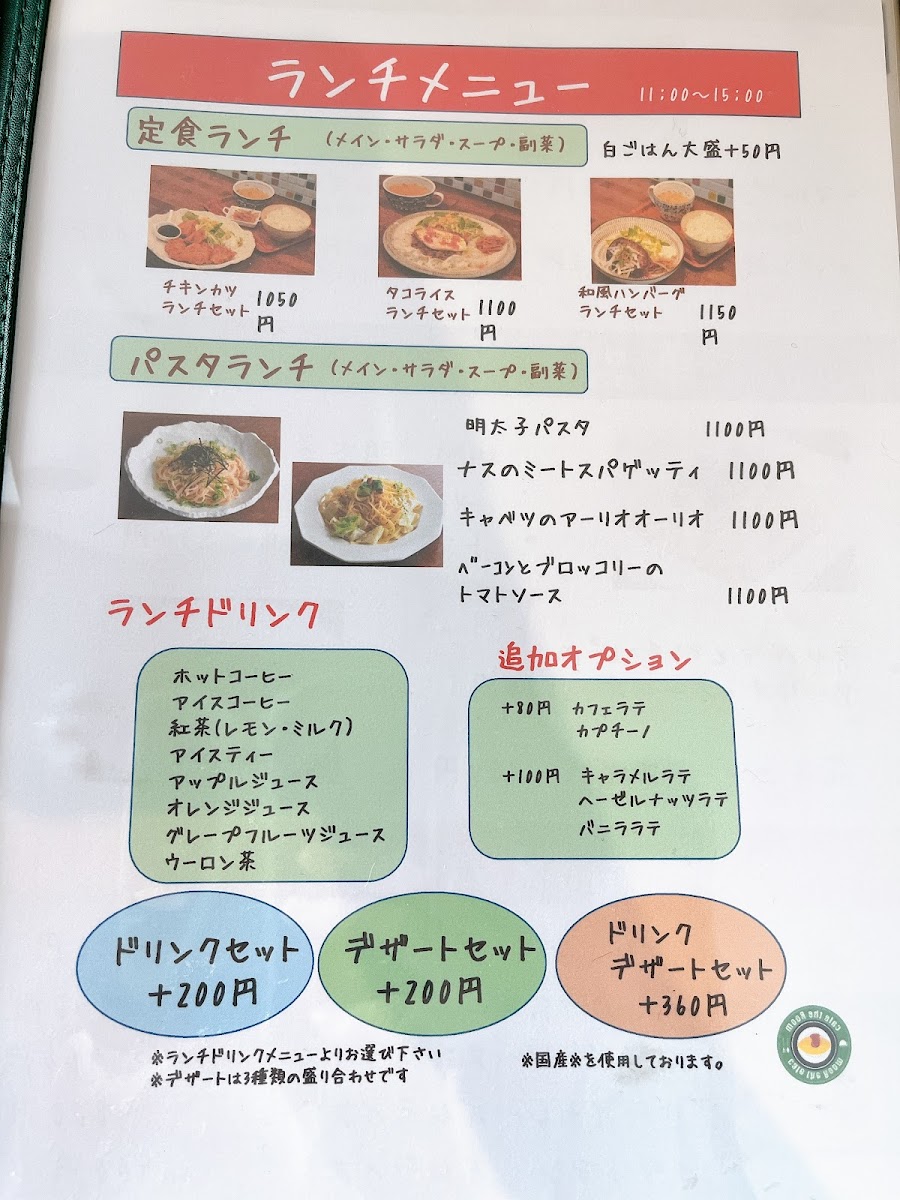 ランチメニュー 11:00～15:00
定食ランチ (メイン・サラダ・スープ・副菜) 白ごはん大盛+50円
チキンカツ
ランチセット 1050円
タコライス
ランチセット 1100円
和風ハンバーグ
ランチセット 1150円
パスタランチ (メイン・サラダ・スープ・副菜)
明太子パスタ 1100円
ナスのミートスパゲッティ 1100円
キャベツのアーリオオーリオ 1100円
ベーコンとブロッコリーの
トマトソース 1100円
ランチドリンク
ホットコーヒー
アイスコーヒー
紅茶(レモン・ミルク)
アイスティー
アップルジュース
オレンジジュース
グレープフルーツジュース
ウーロン茶
追加オプション
+80円 カフェラテ
カプチーノ
+100円 キャラメルラテ
ヘーゼルナッツラテ
バニララテ
ドリンクセット
+200円
デザートセット
+200円
ドリンク
デザートセット
+360円
※ランチドリンクメニューよりお選び下さい
※デザートは3種類の盛り合わせです
※国産米を使用しております。
cafe the Room
cafe the Room